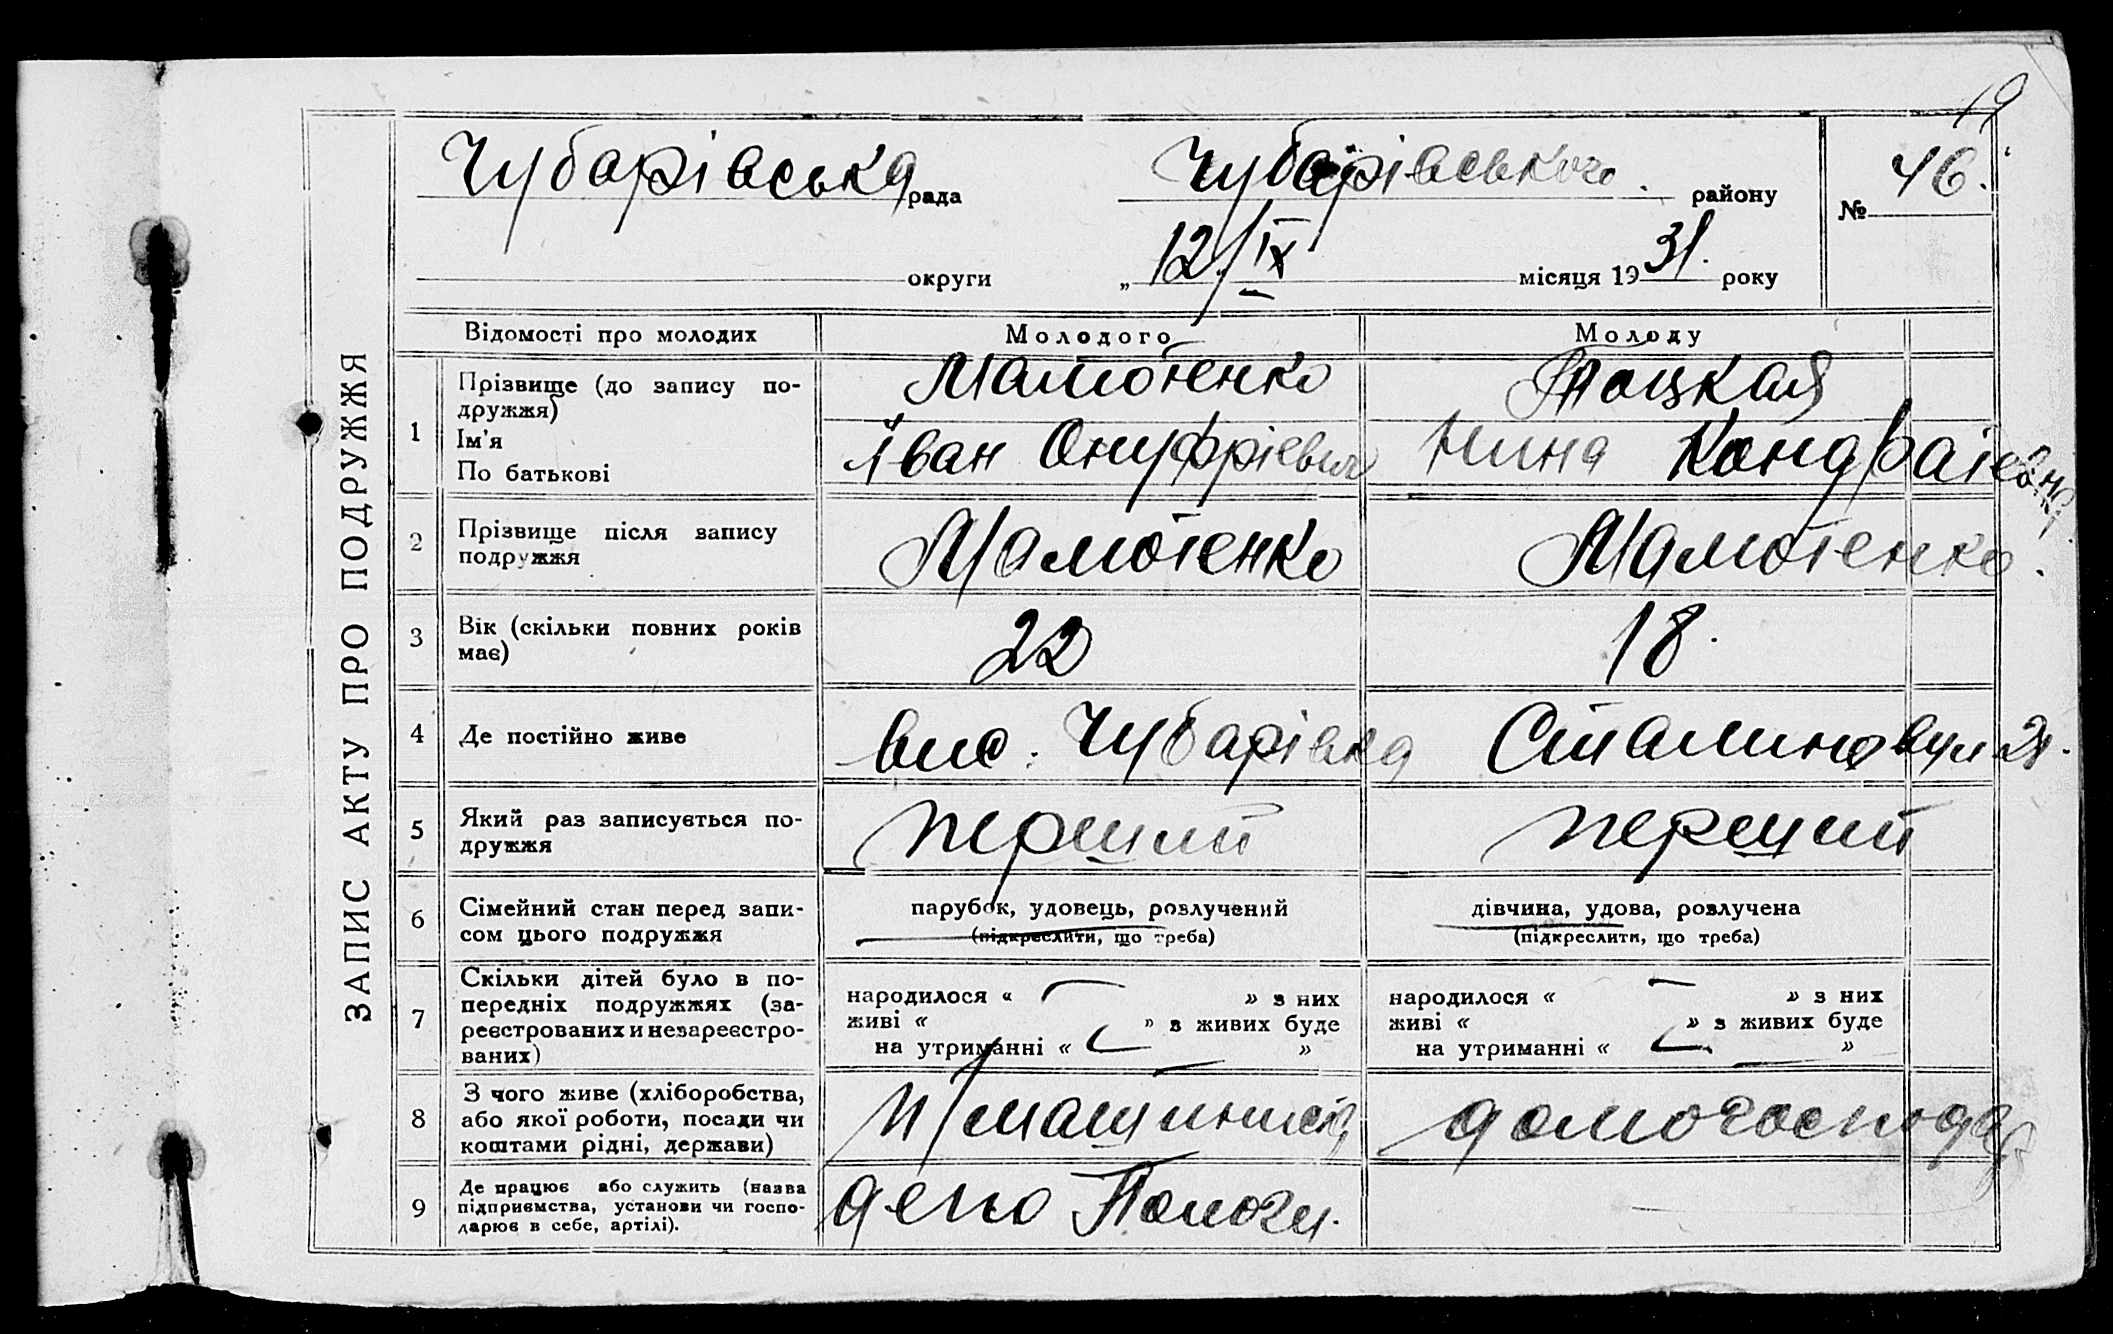 19
ЗАПИС АКТУ ПРО ПОДРУЖЖЯ
Чубарівська рада Чубарівського району № 46.
округи „12/IX місяця 1931. року
Відомості про молодих Молодого Молоду
1 Прізвище (до запису по-
дружжя)
Ім'я
По батькові
Іван Онуфрієвич Нина Кондратієвна
2 Прізвище після запису
подружжя
3 Вік (скільки повних років
має)
22 18.
4 Де постійно живе вис. Чубарівка Сталина вул 21.
5 Який раз записується по-
дружжя
перший перщий
6 Сімейний стан перед запи-
сом цього подружжя
парубок, удовець, розлучений
(підкреслити, що треба)
дівчина, удова, розлучена
(підкреслити, що треба)
7 Скільки дітей було в по-
передніх подружжях (за-
реєстрованих и незареєстро-
ваних)
народилося « » з них
живі « » з живих буде
на утриманні « »
народилося « » з них
живі « » з живих буде
на утриманні « »
8 З чого живе (хліборобства,
або якої роботи, посади чи
коштами рідні, держави)
п/машиніста домогосподар
9 Де працює або служить (назва
підприємства, установи чи госпо-
дарює в себе, артілі).
депо Пологи.